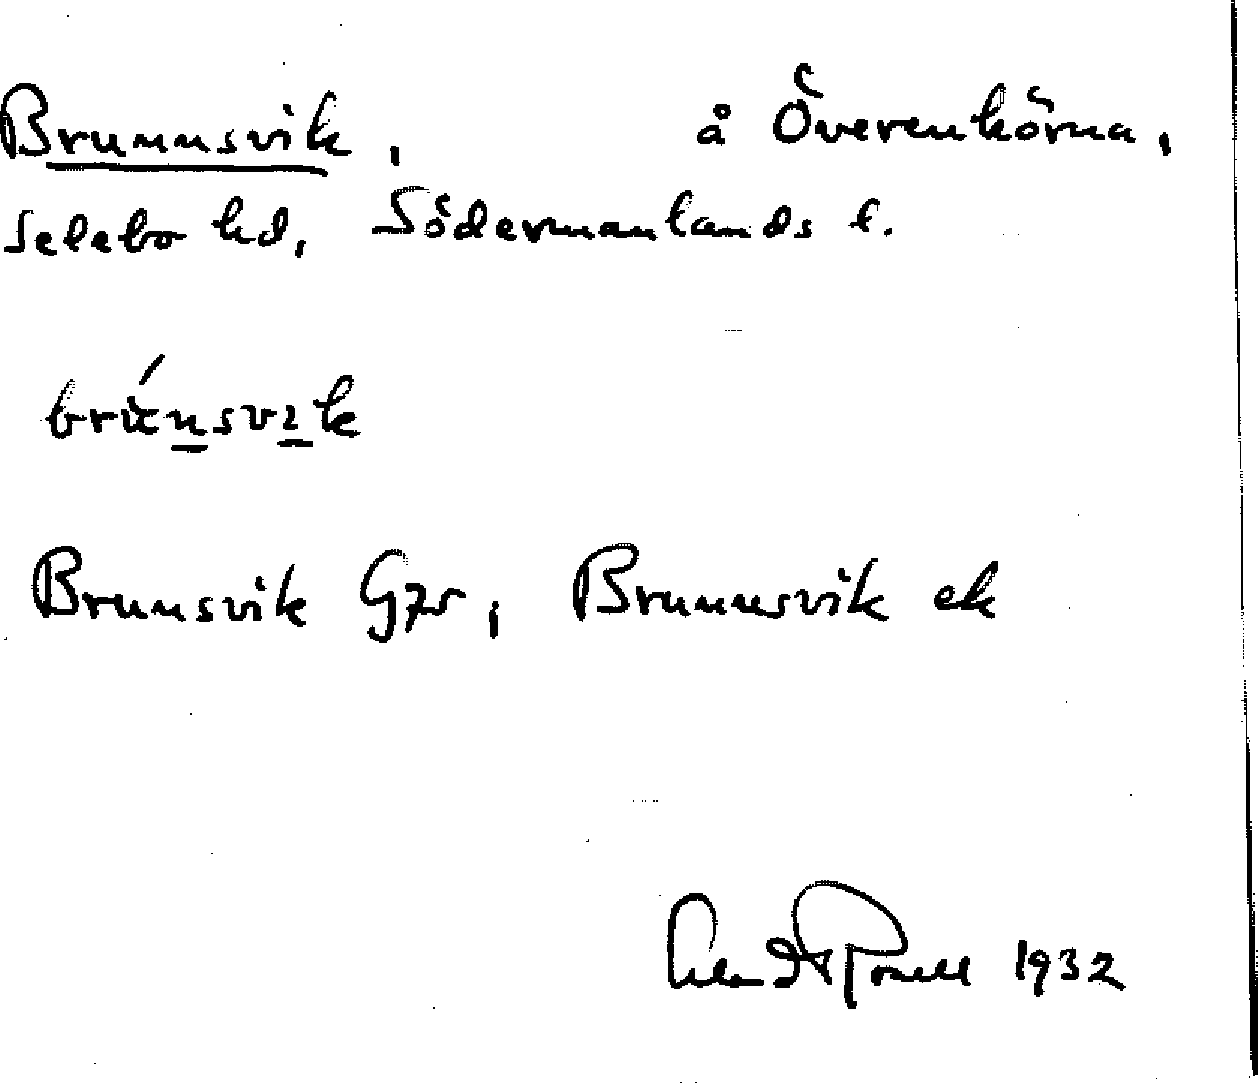 Brunnsvik, å Överenhörna,
Selebo hd, Södermanlands l.
brúnsvik
Brunsvik Gzs, Brunnsvik ek
1932